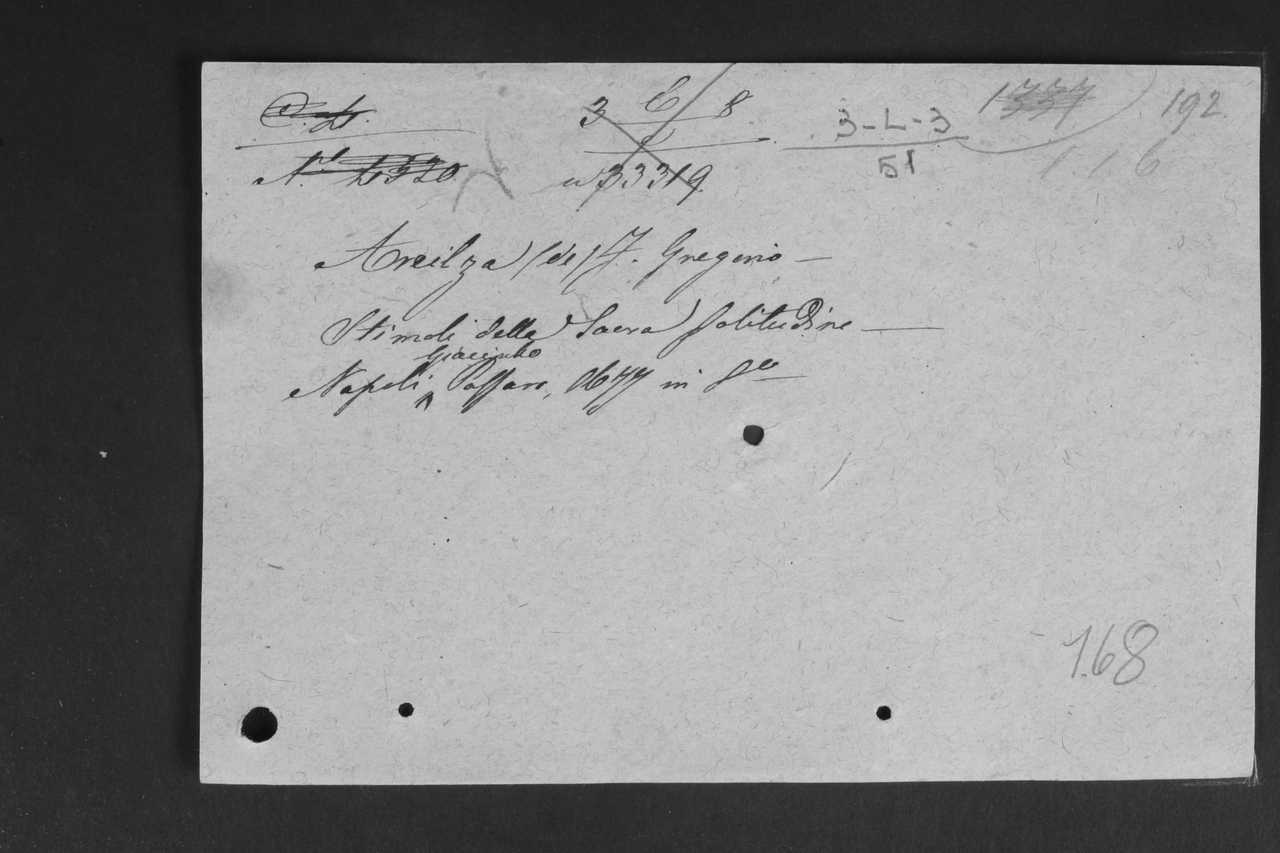 C. L.
3 C 8
3-L-3
1737
192
N.º 2320
nº 33319
51
1.1.6
Areilza (de) F. Gregorio —
Stimoli della Sacra solitudine —
Giacinto
Napoli, Passaro, 1677 in 8º —
168